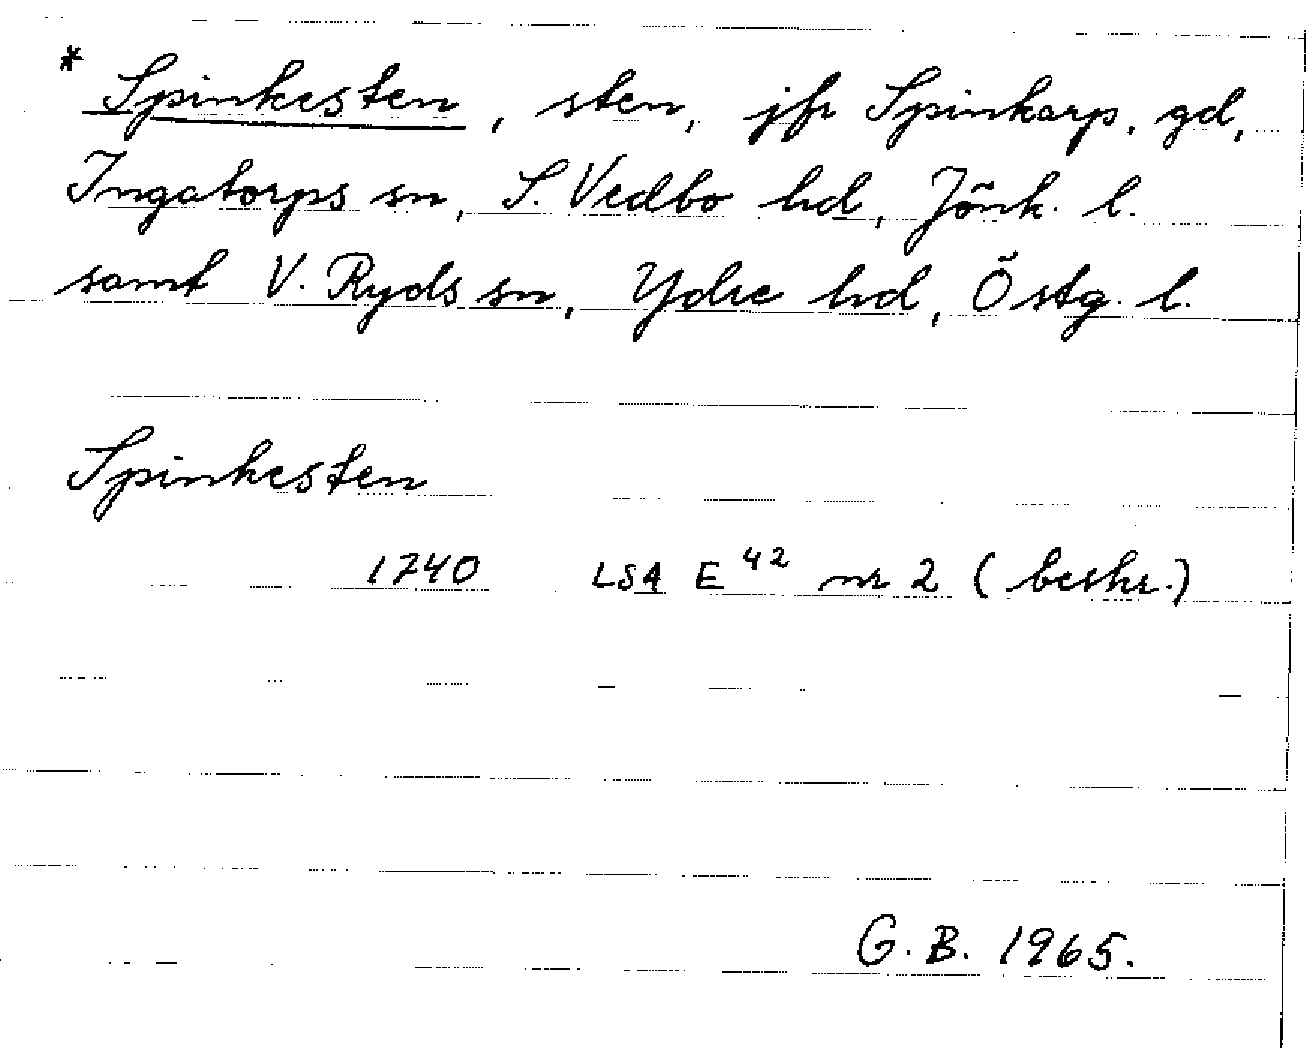 * Spinkesten, sten, jfr Spinkarp, gd,
Ingatorps sn, S. Vedbo hd, Jönk. l.
samt V. Ryds sn, Ydre hd, Östg. l.
Spinkesten
1740 LSA E 42 nr 2 (beskr.)
G. B. 1965.